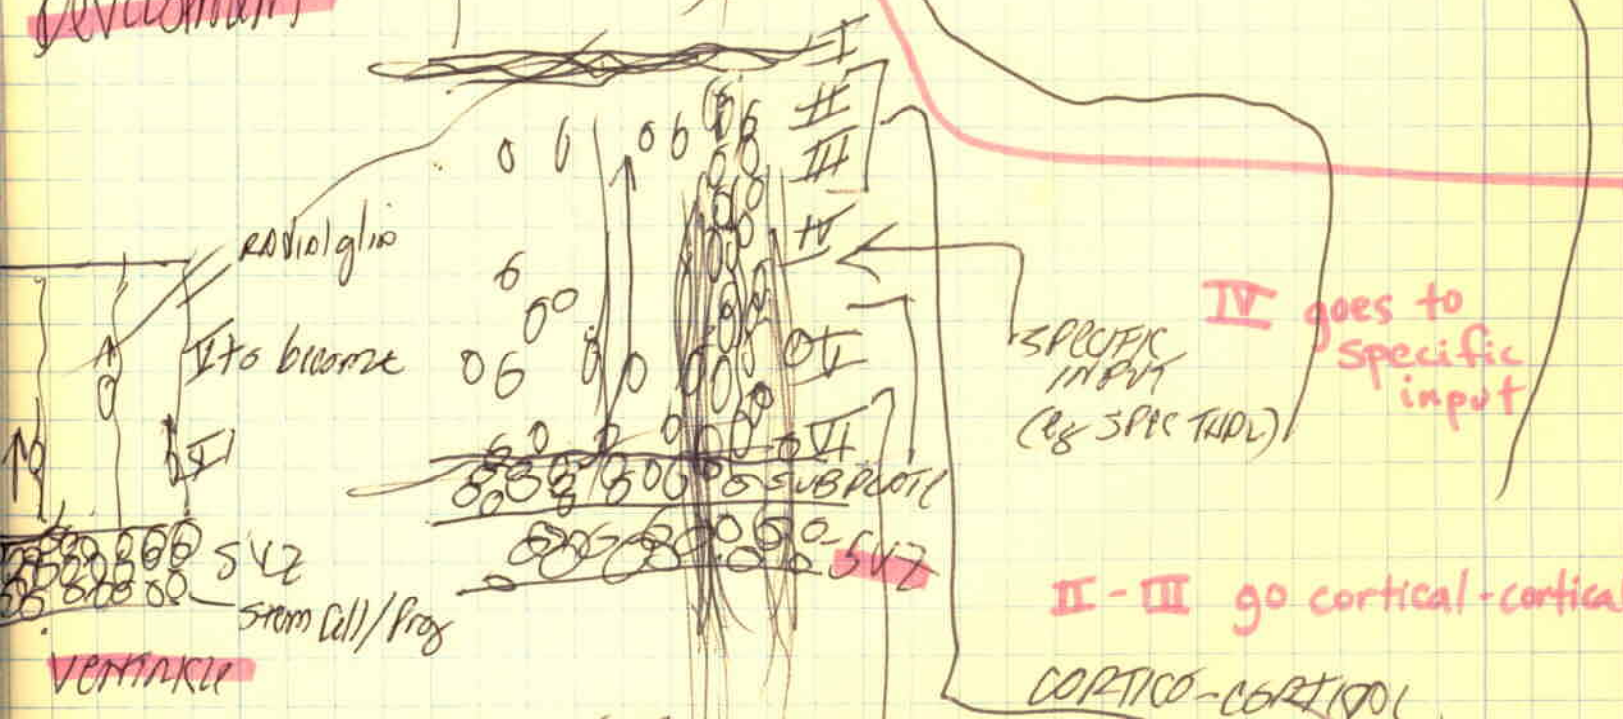 Development
I
II
III
IV
V
VI
SUBPLATE
SVZ
Radial glia
V to become
VI
SVZ
Stem Cell/Prog
Ventricle
SPECIFIC
INPUT
(eg SPEC THAL)
IV goes to
specific
input
II - III go cortical-cortica
CORTICO-CORTICAL